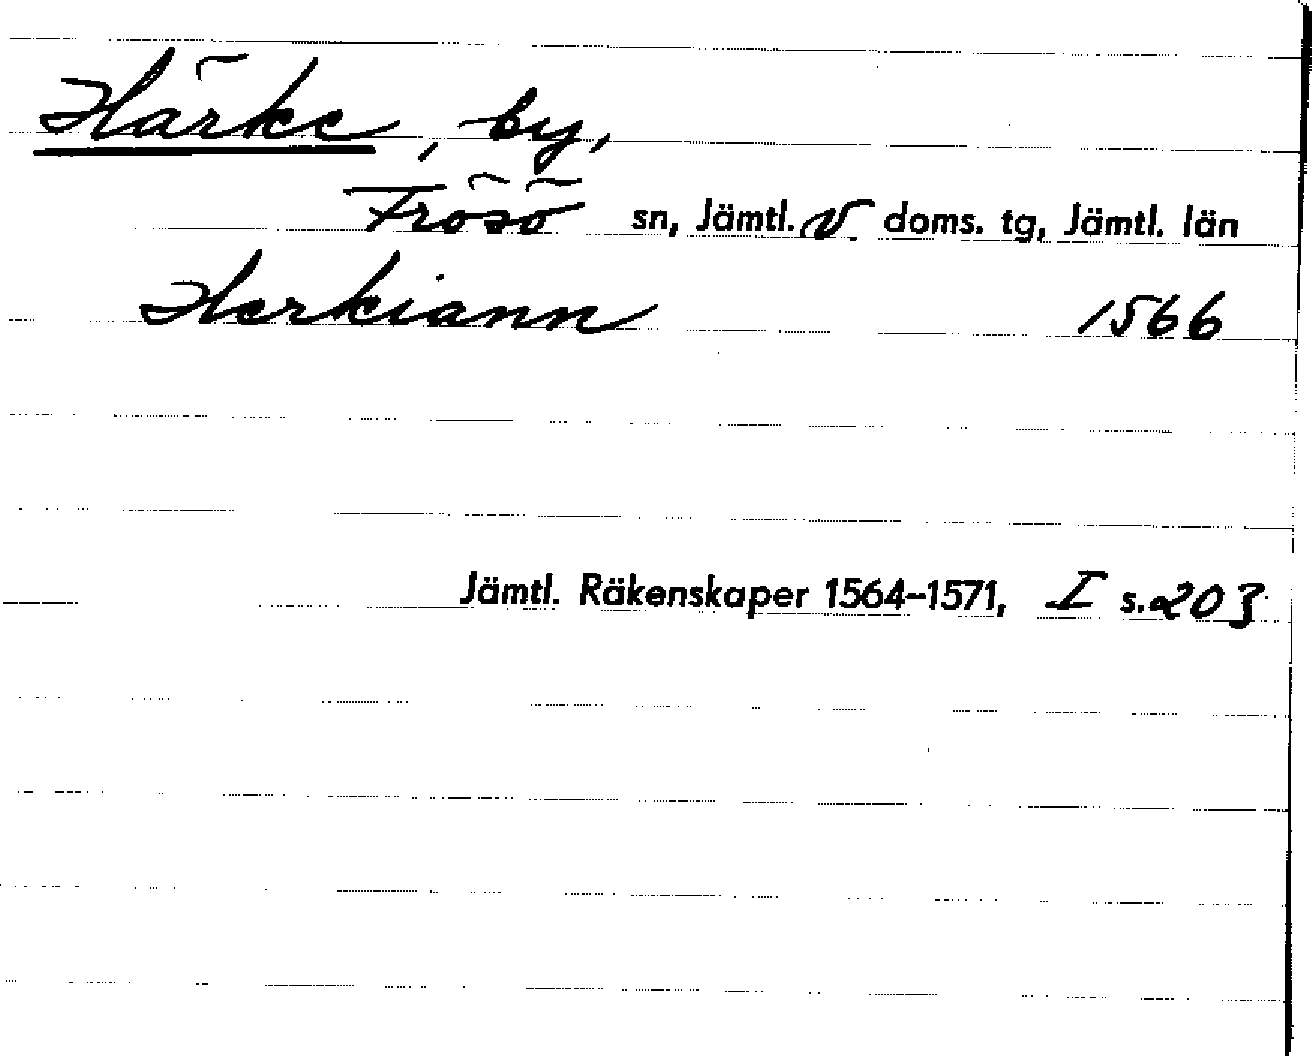 Härke, by,
Frösö sn, Jämtl. V. doms. tg, Jämtl. län
Herkiann 1566
Jämtl. Räkenskaper 1564–1571, I s. 203